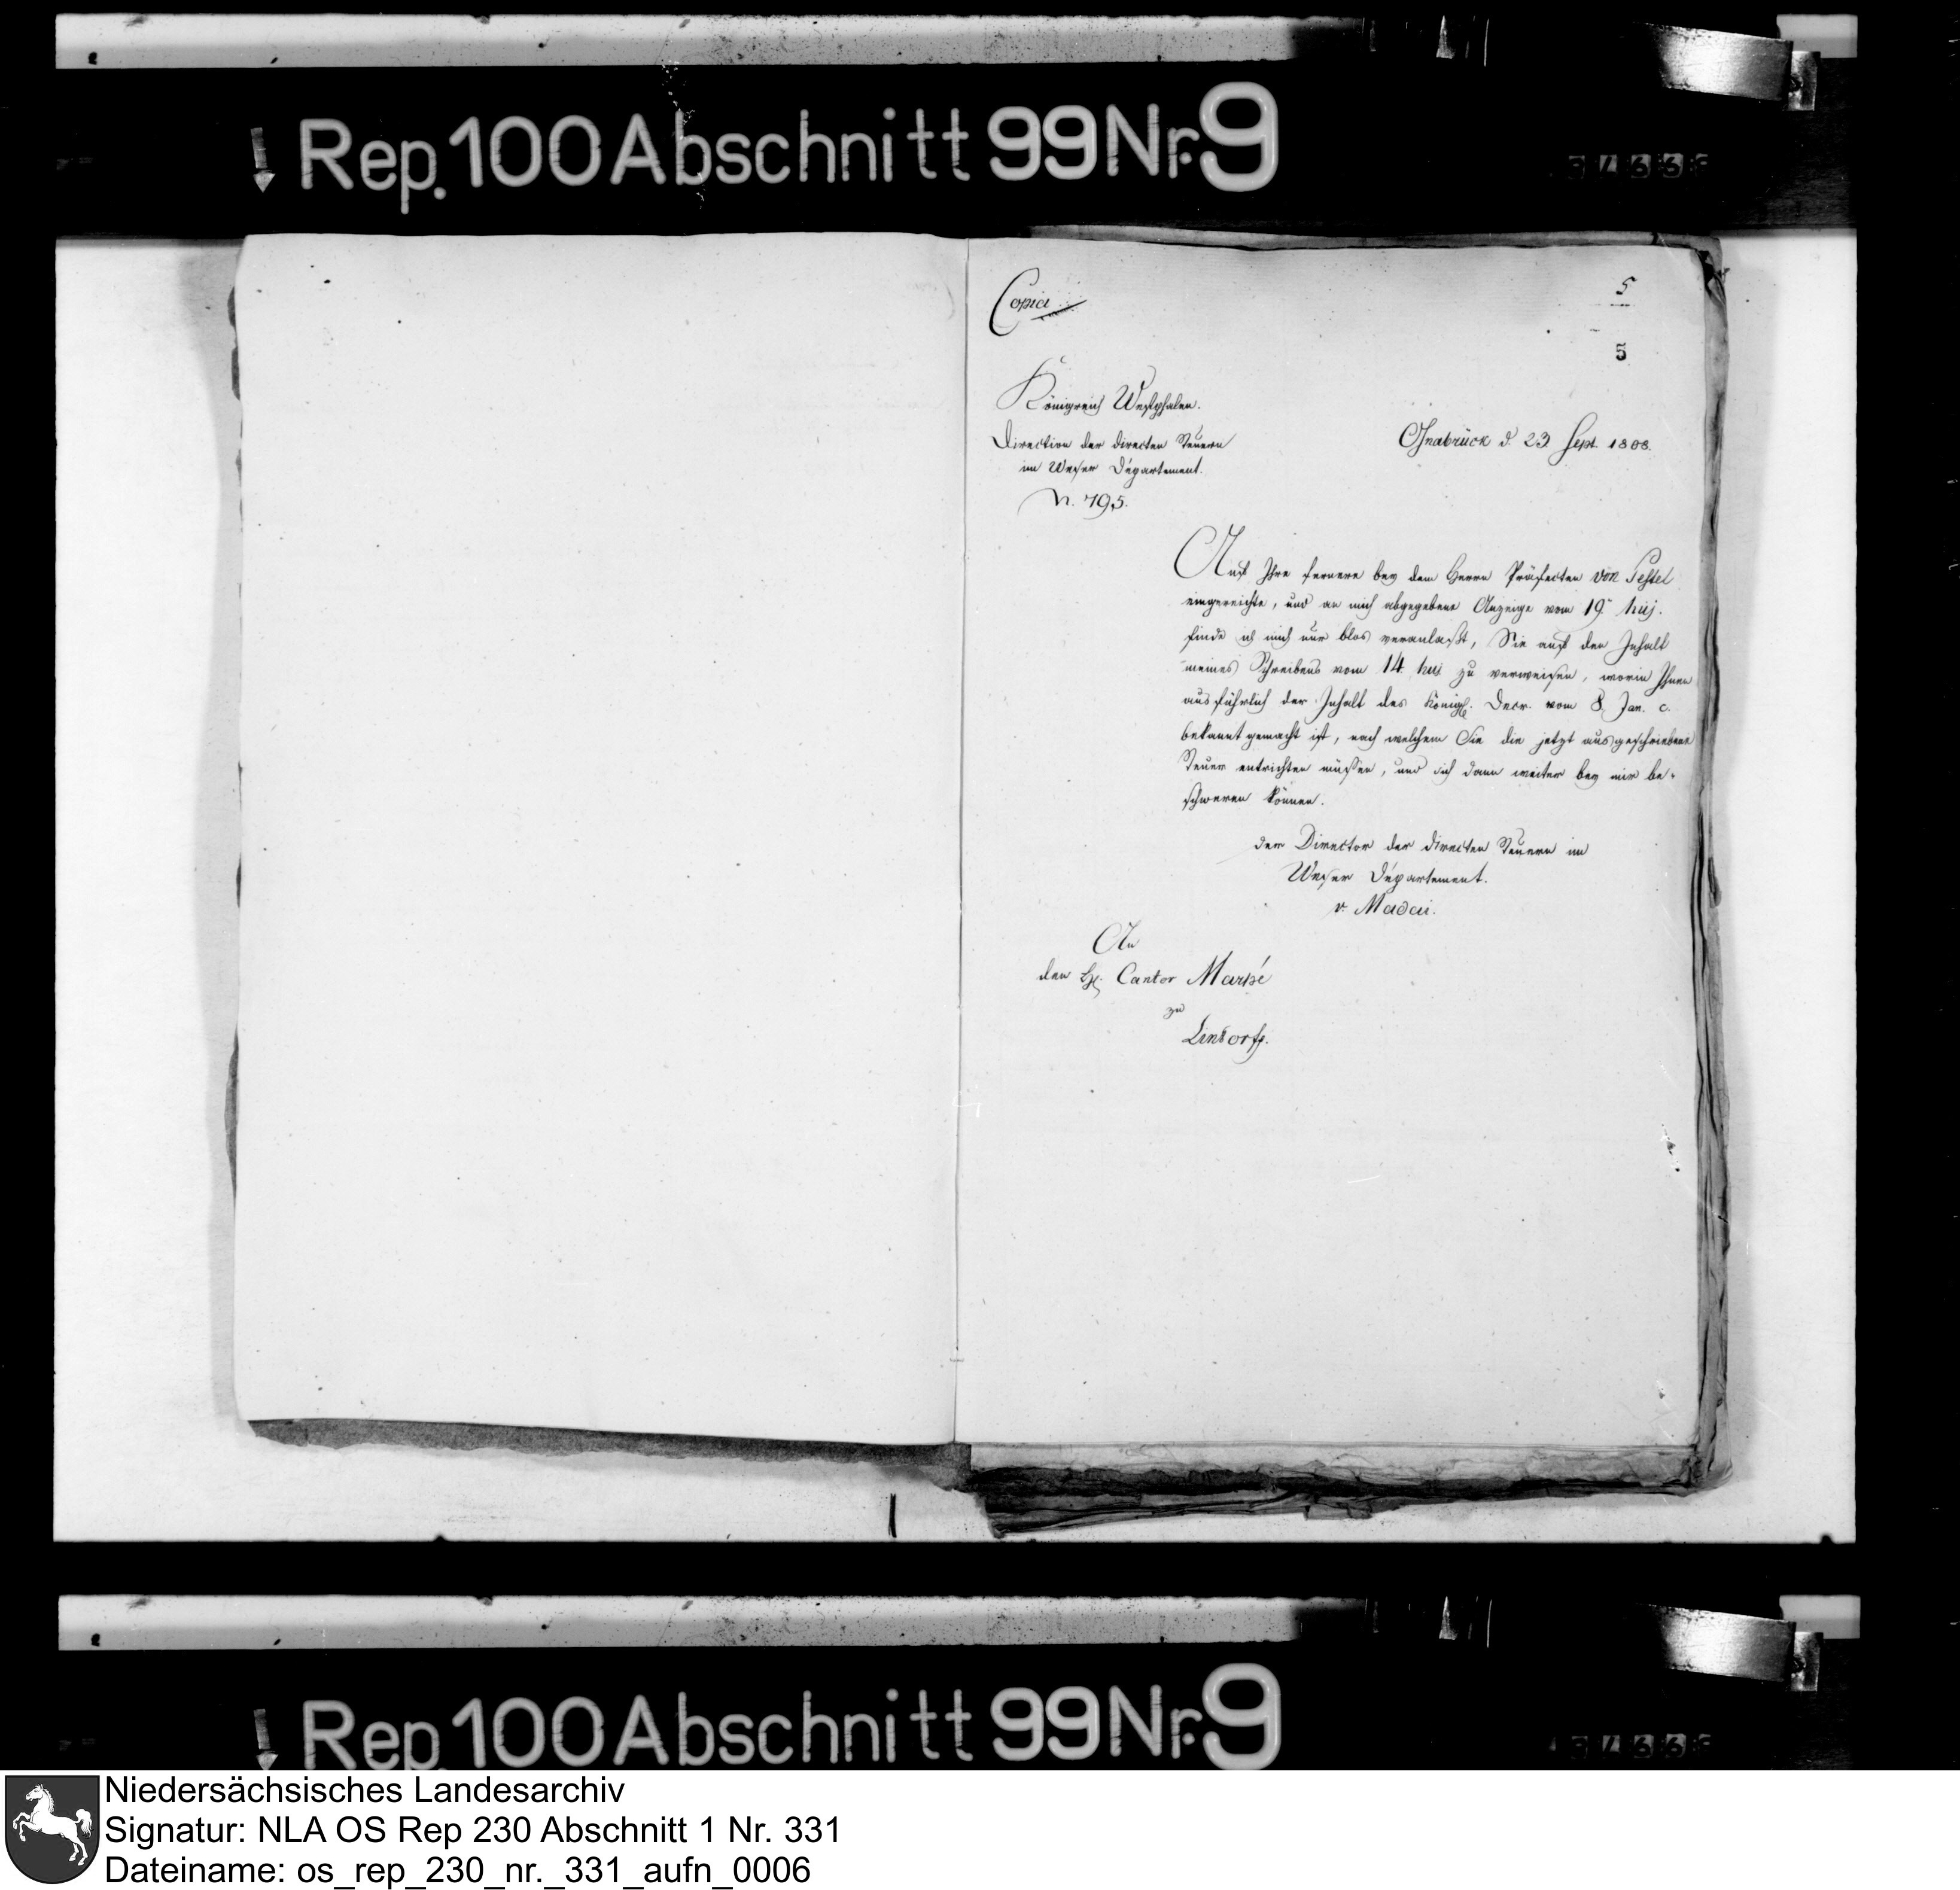 Rep. 100 Abschnitt 99 Nr. 9
Copia
5
5
Königreich Westphalen.
Direction der directen Steuern
im Weser Département.
N. 795.
Osnabrück d. 23. Sept. 1808.
Auf Ihre fernere bey dem Herrn Präfecten von Pestel
eingereichte, und an mich abgegebene Anzeige vom 19. huj.
finde ich mich nur blos veranlaßt, Sie auf den Inhalt
meines Schreibens vom 14. huj. zu verweisen, worin Ihnen
ausführlich der Inhalt des Königl. Decr. vom 8. Jan. c.
bekannt gemacht ist, nach welchem Sie die jetzt ausgeschriebene
Steuer entrichten müssen, und sich dann weiter bey mir be-
schweren können.
der Director der directen Steuern im
Weser Département.
v. Madai.
An
den H. Cantor
zu
Lintorf.
Rep. 100 Abschnitt 99 Nr. 9
Niedersächsisches Landesarchiv
Signatur: NLA OS Rep 230 Abschnitt 1 Nr. 331
Dateiname: os_rep_230_nr._331_aufn_0006